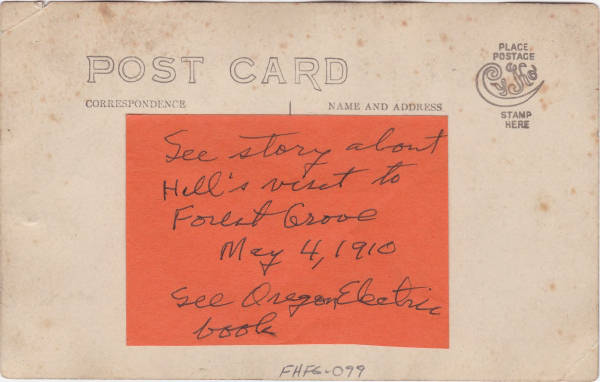 PLACE
POSTAGE
STAMP
HERE
POST CARD
CORRESPONDENCE
NAME AND ADDRESS
See story about
Hill's visit to
Forest Grove
May 4, 1910
See Oregon Electric
book
FHFG-099